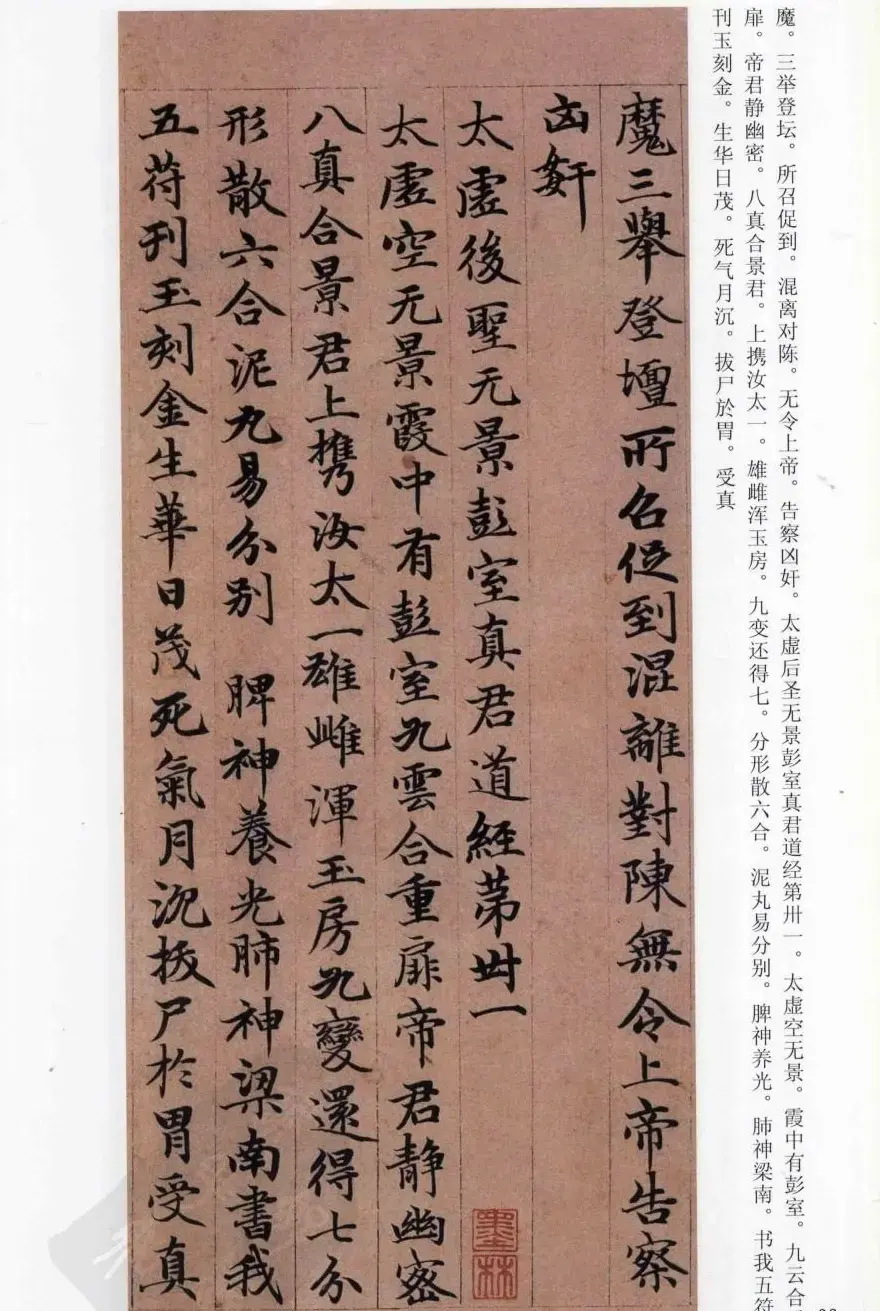 魔。三举登坛。所召促到。混离对陈。无令上帝。告察凶奸。太虚后圣无景彭室真君道经第卅一。太虚空无景。霞中有彭室。九云合
扉。帝君静幽密。八真合景君。上携汝太一。雄雌浑玉房。九变还得七。分形散六合。泥丸易分别。脾神养光。肺神梁南。书我五符
刊玉刻金。生华日茂。死气月沉。拔尸於胃。受真
魔三舉登壇所召促到混離對陳無令上帝告察
凶奸
太虛後聖无景彭室真君道經第卌一
太虛空无景霞中有彭室九雲合重扉帝君静幽密
八真合景君上携汝太一雄雌渾玉房九變還得七分
形散六合泥丸易分别 脾神養光肺神梁南書我
五符刊玉刻金生華日茂死氣月沉拔尸於胃受真
墨林